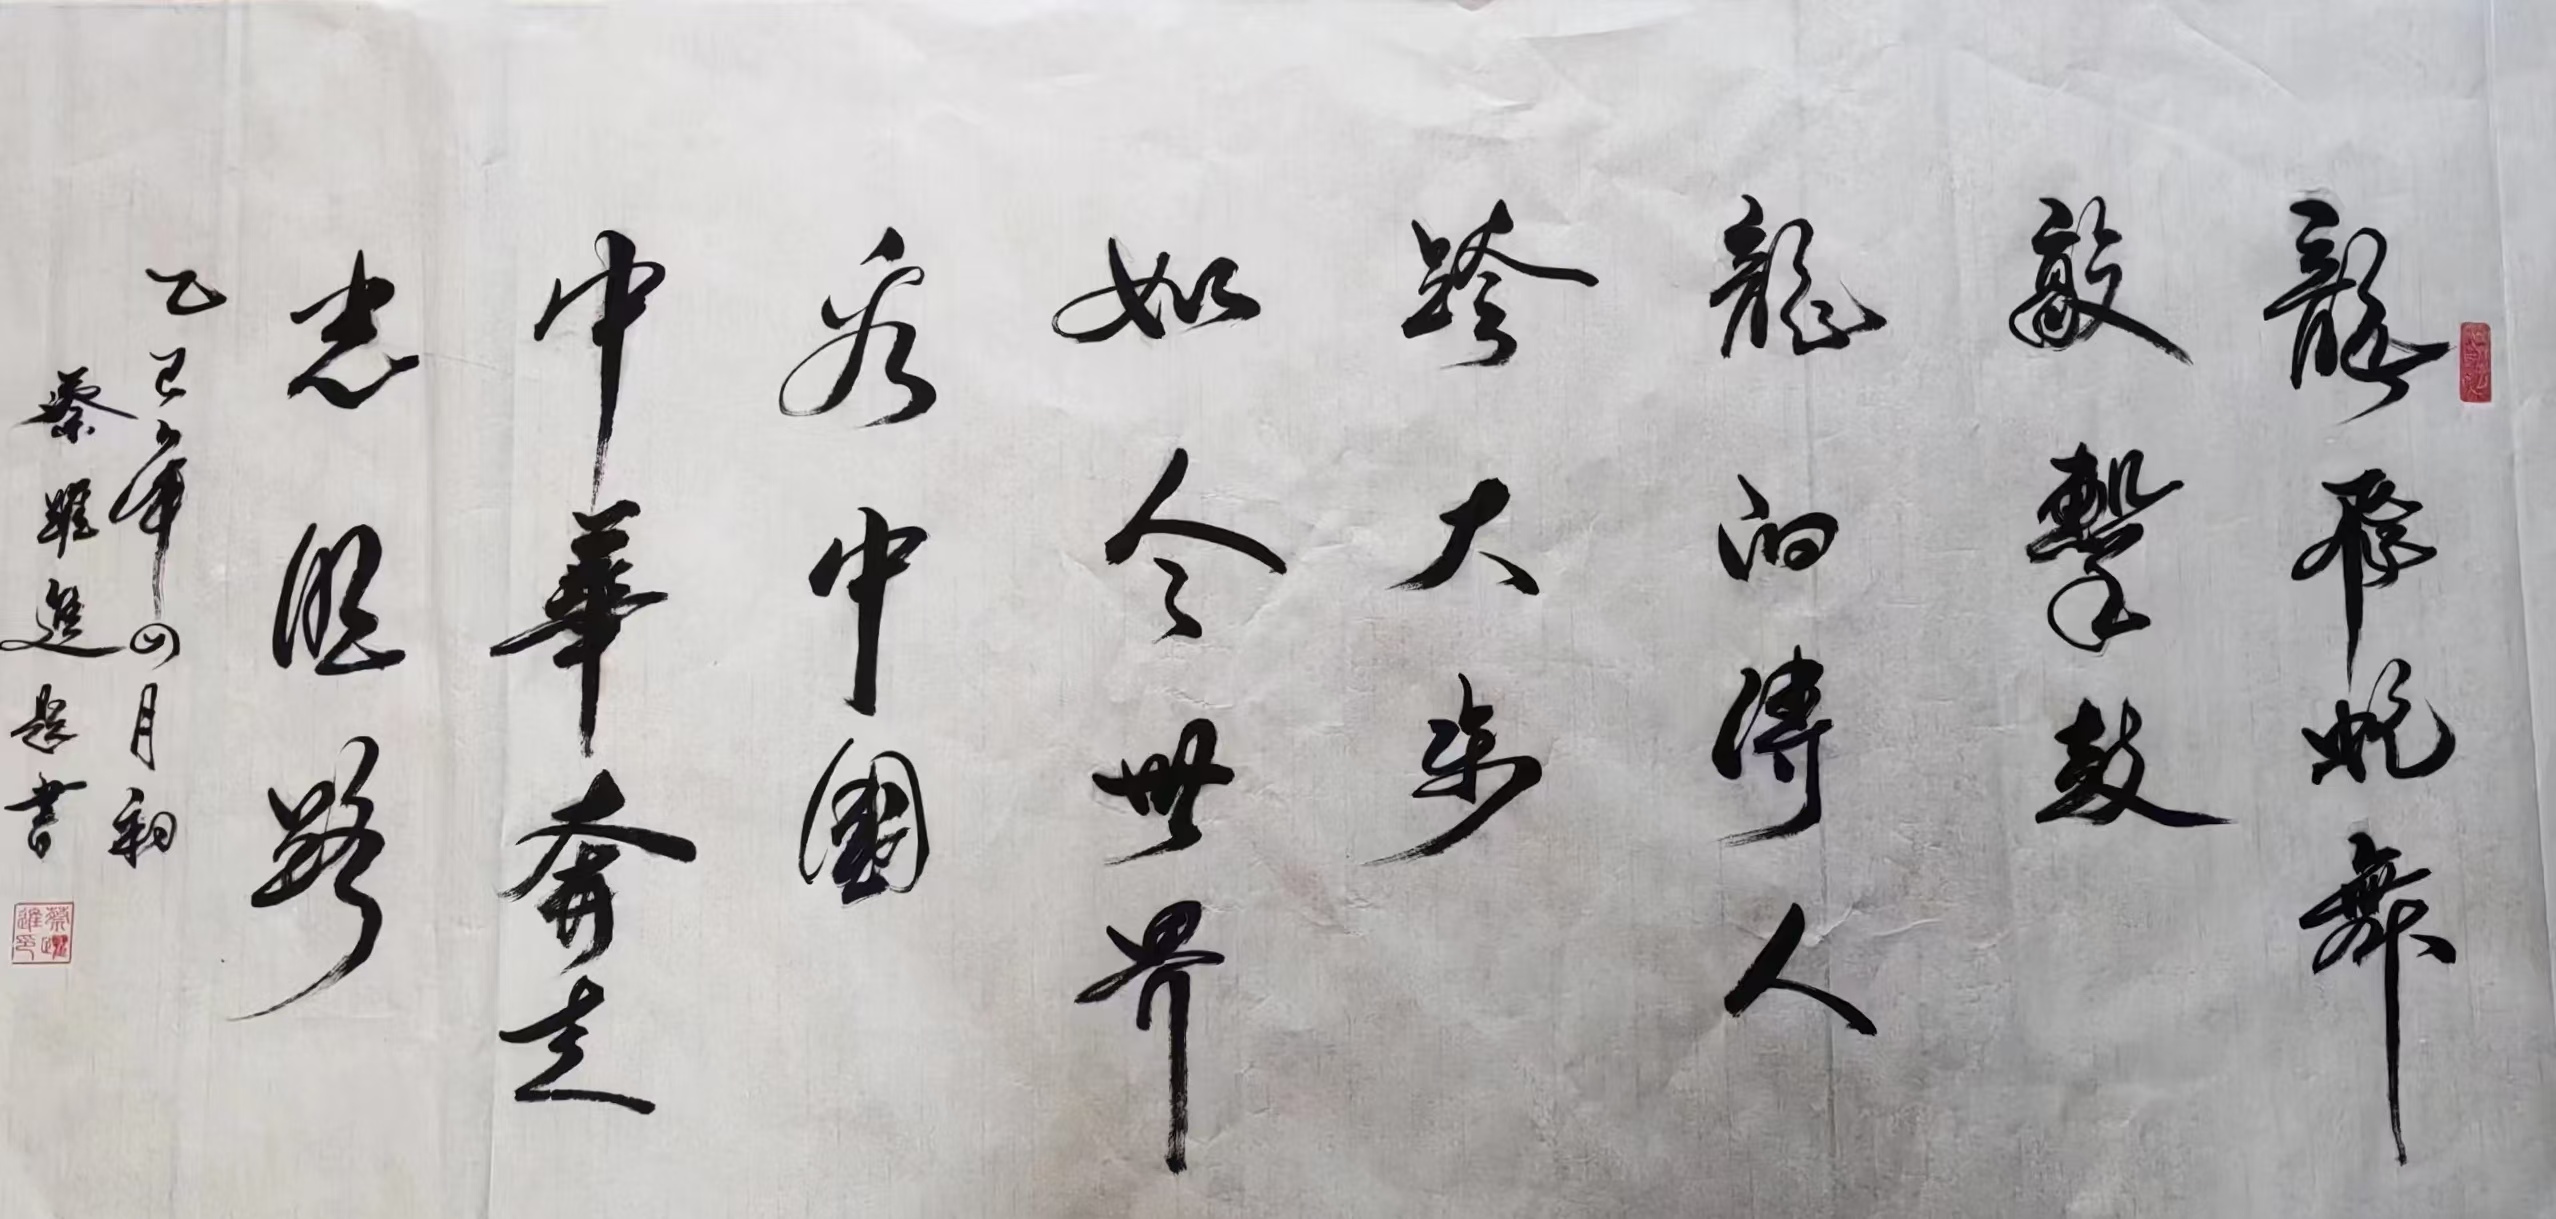 龍飛蛇舞
敲擊鼓
龍的傳人
跨大步
如今世界
看中國
中華奔走
光明路
乙巳年四月初
蔡躍進題書
蔡躍進印